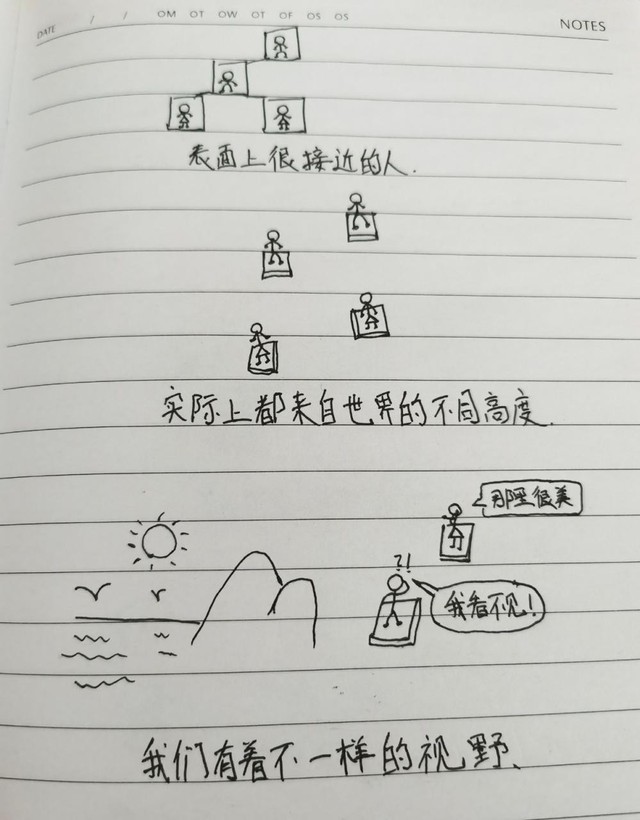 DATE / / OM OT OW OT OF OS OS NOTES
表面上很接近的人.
实际上都来自世界的不同高度.
那里很美
?!
我看不见!
我们有着不一样的视野、